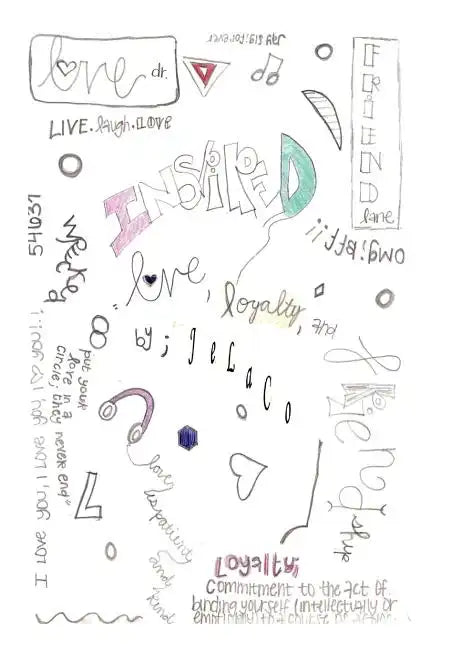 love dr.
Jay sig;forever
FRIEND
lane
LIVE.laugh.LOVE
INSPIRED
omg;bff!!
541631
wrecked
"love,
loyalty,
and
friendship
by; JeLaCo
"put your
love in a
circle; they never end"
I love you, I love you, I <3 you!!!
love
is patient
and kind
Loyalty;
Commitment to the act of
binding yourself (intellectually or
emotionally) to a course of action.